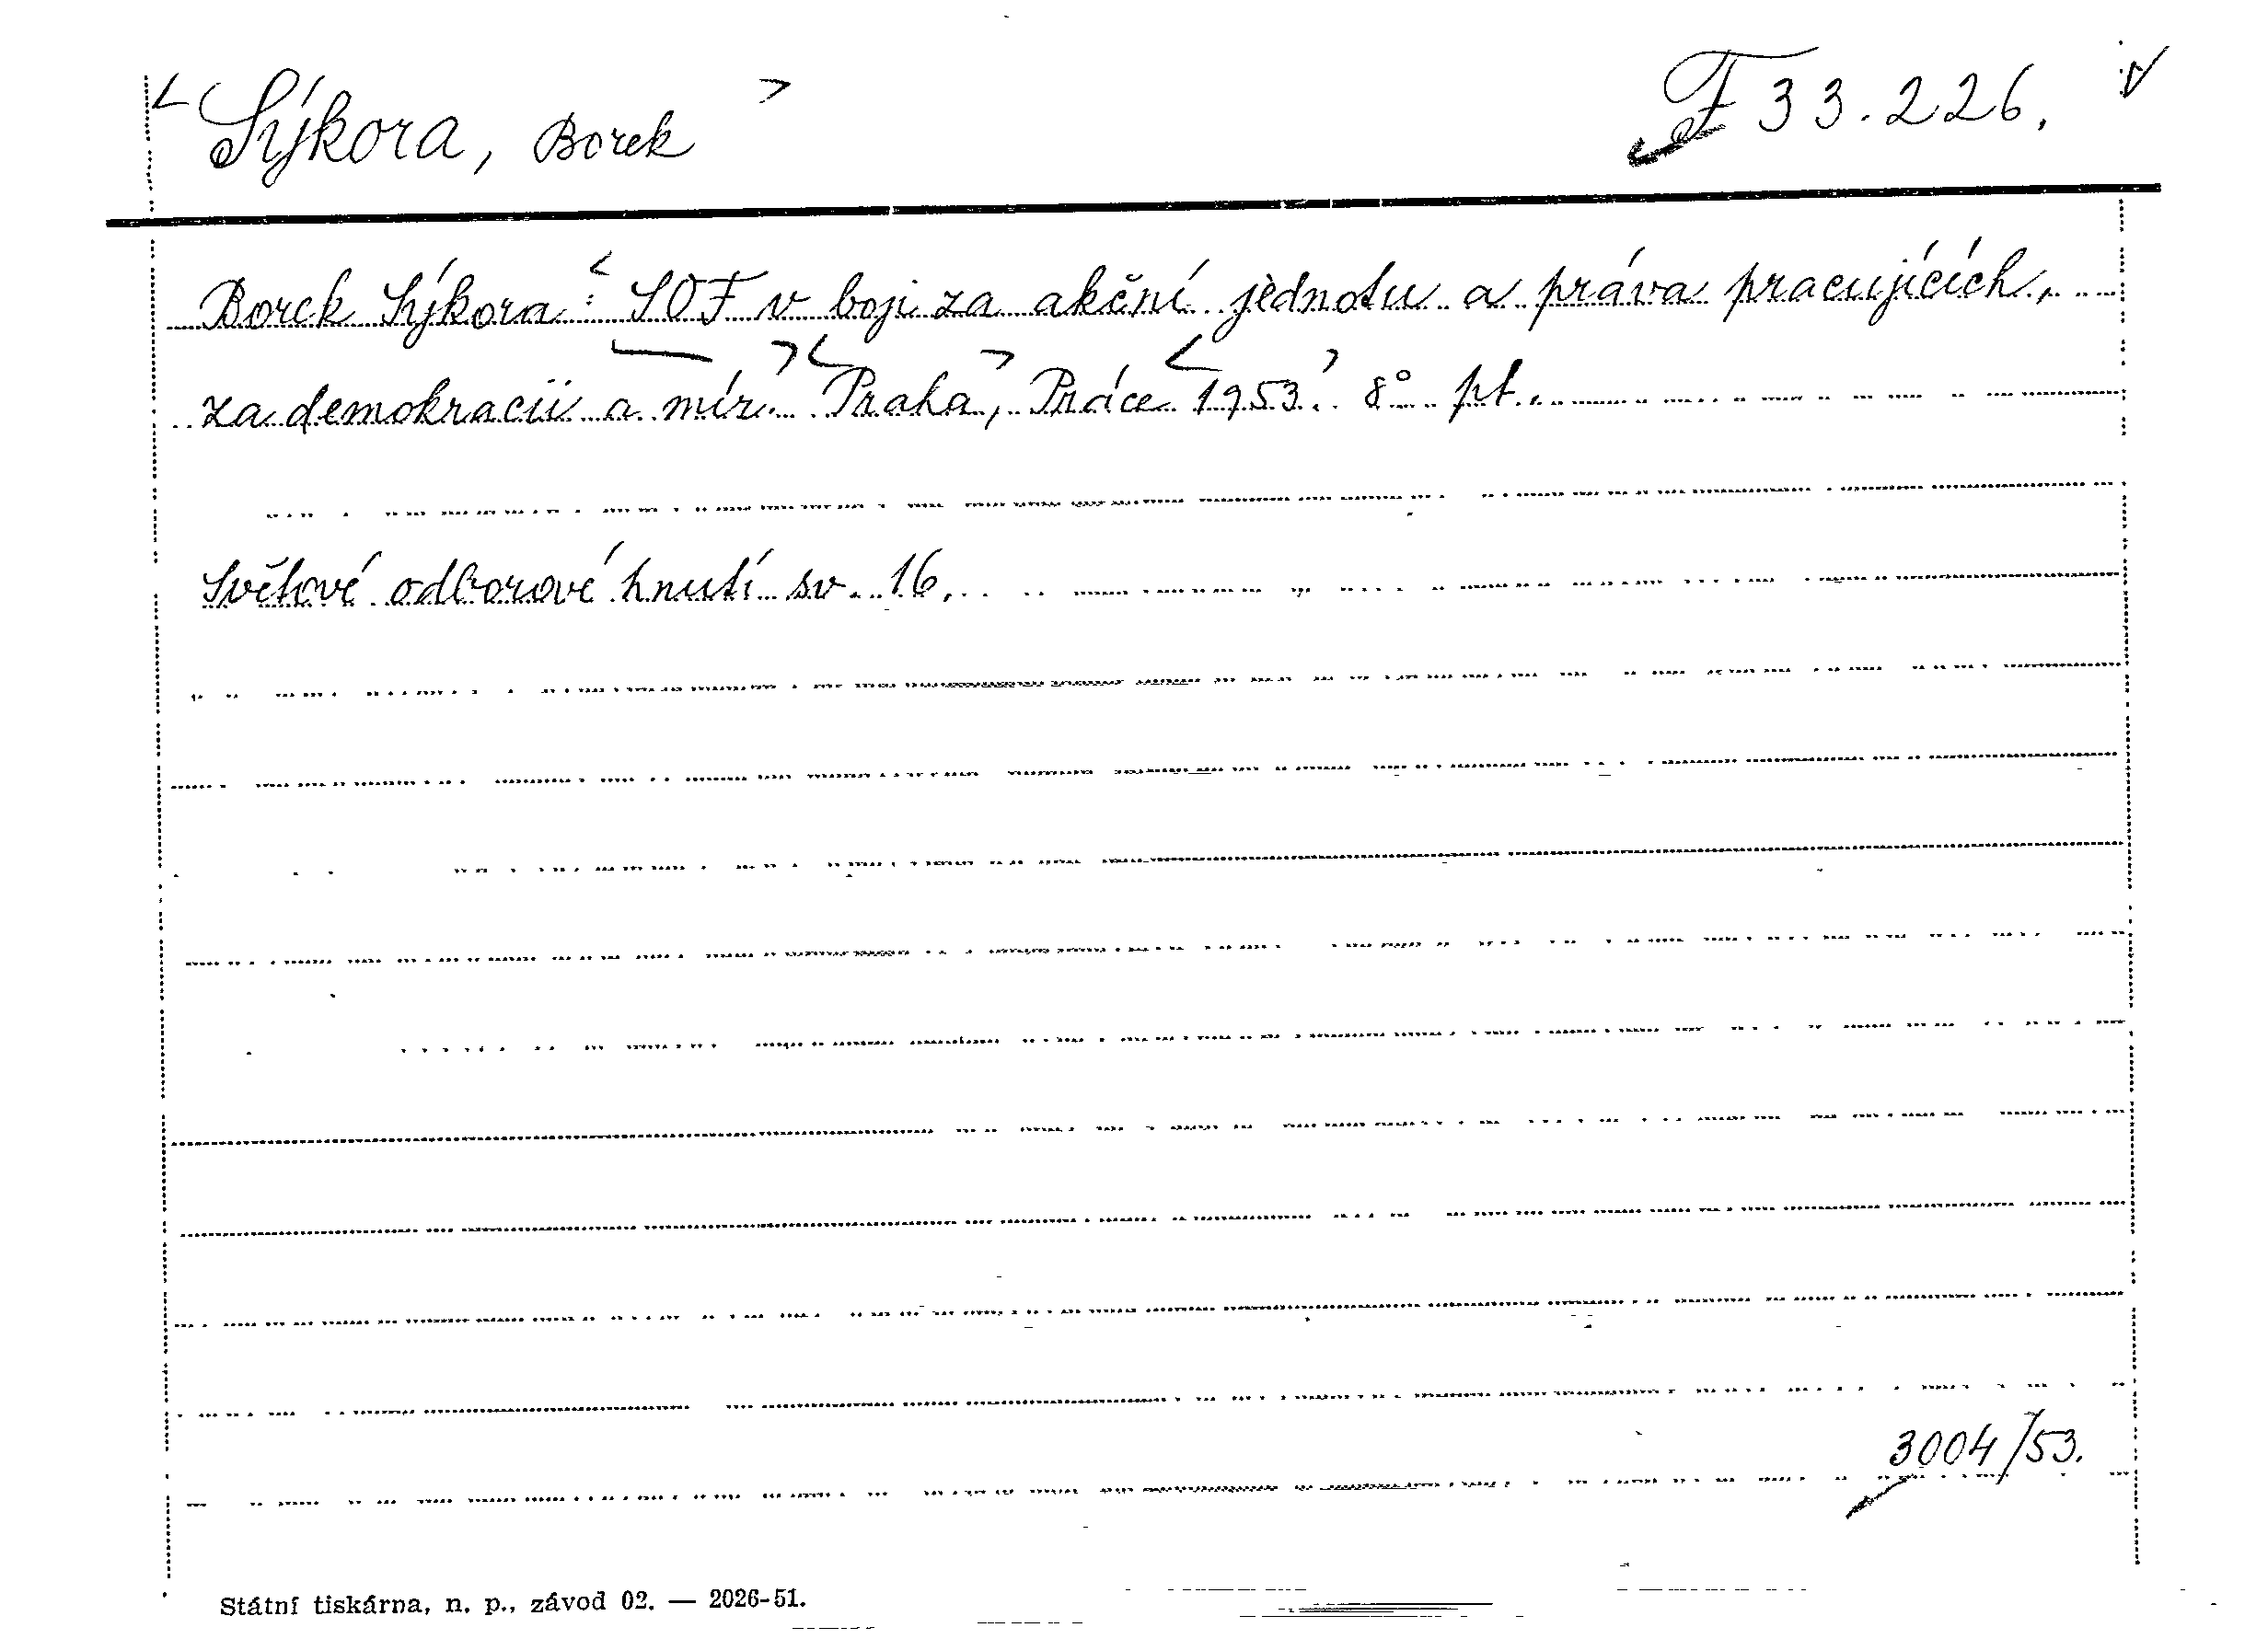 Sýkora, Borek F 33.226.
Borek Sýkora: SOF v boji za akční jednotu a práva pracujících,
za demokracii a mír. Praha, Práce 1953. 8° pt.
Světové odborové hnutí sv. 16.
3004/53.
Státní tiskárna, n. p., závod 02. — 2026-51.